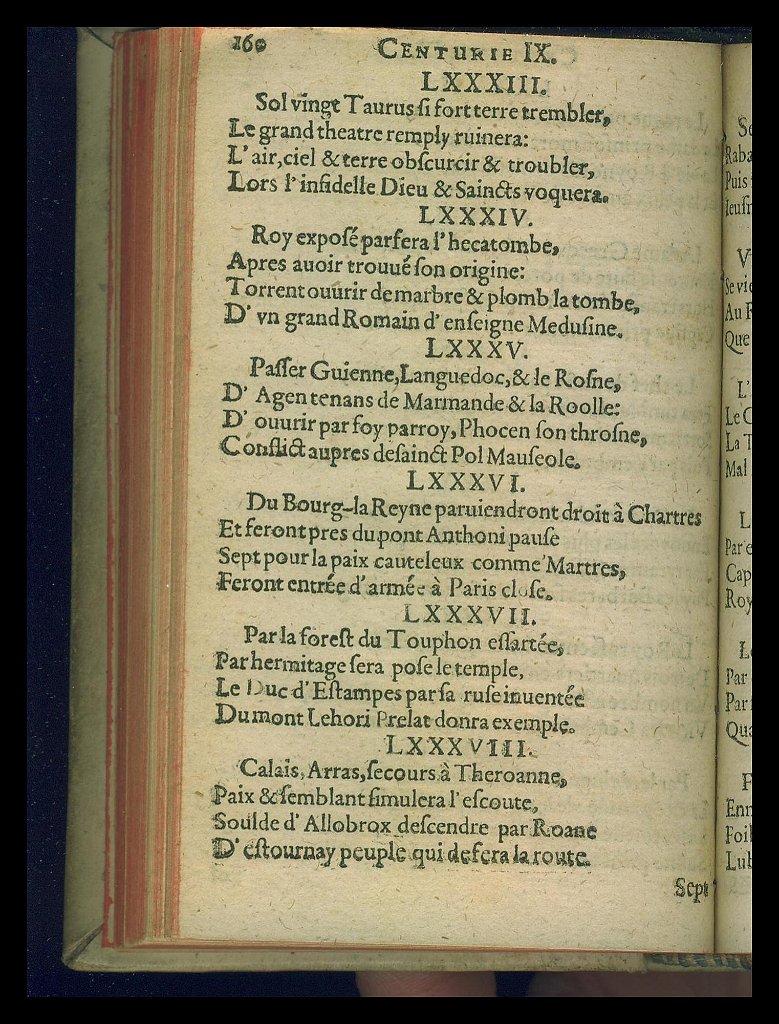 160 CENTURIE IX.
LXXXIII.
Sol vingt Taurus ſi fort terre trembler,
Le grand theatre remply ruinera:
L'air, ciel & terre obſcurcir & troubler,
Lors l'infidelle Dieu & Saincts voquera.
LXXXIV.
Roy expoſé parfera l'hecatombe,
Apres auoir trouué ſon origine:
Torrent ouurir de marbre & plomb la tombe,
D'vn grand Romain d'enſeigne Meduſine.
LXXXV.
Paſſer Guienne, Languedoc, & le Roſne,
D'Agen tenans de Marmande & la Roolle:
D'ouurir par foy parroy, Phocen ſon throſne,
Conflict aupres deſainct Pol Mauſeole.
LXXXVI.
Du Bourg-la Reyne paruiendront droit à Chartres
Et feront pres du pont Anthoni pauſe
Sept pour la paix cauteleux comme Martres,
Feront entrée d'armée à Paris cloſe.
LXXXVII.
Par la foreſt du Touphon eſſartée,
Par hermitage ſera poſe le temple,
Le Duc d'Eſtampes par ſa ruſe inuentée
Du mont Lehori Prelat donra exemple.
LXXXVIII.
Calais, Arras, ſecours à Theroanne,
Paix & ſemblant ſimulera l'eſcoute,
Soulde d'Allobrox deſcendre par Roane
D'eſtournay peuple qui defera la route.
Sept